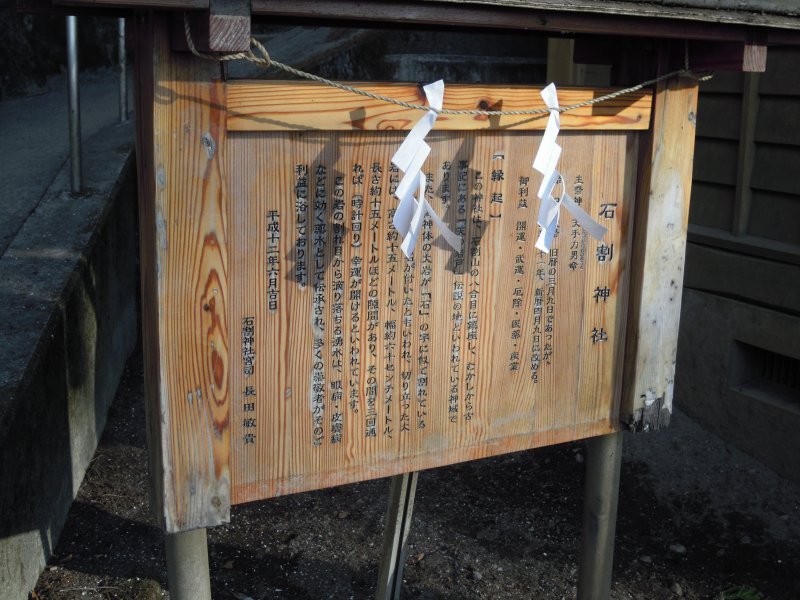 石割神社
主祭神 天手力男命
旧暦の三月九日であったが、
十一年、新暦四月九日に改める。
御利益 開運・武運・厄除・医薬・産業
【縁起】
この神社は、石割山の八合目に鎮座し、むかしから古
事記にある 天の岩戸 伝説の地といわれている神域で
あります。
また 神体の大岩が「石」の字に似て割れている
名が付いたともいわれ、切り立った大
岩には、高さ約十五メートル、幅約六十センチメートル、
長さ約十五メートルほどの隙間があり、その間を三回通
れば(時計回り)幸運が開けるといわれています。
この岩の割れ目から滴り落ちる湧水は、眼病・皮膚病
などに効く薬水として伝承され、多くの崇敬者がそのご
利益に浴しております。
平成十二年六月吉日
石割神社宮司 長田敏貴